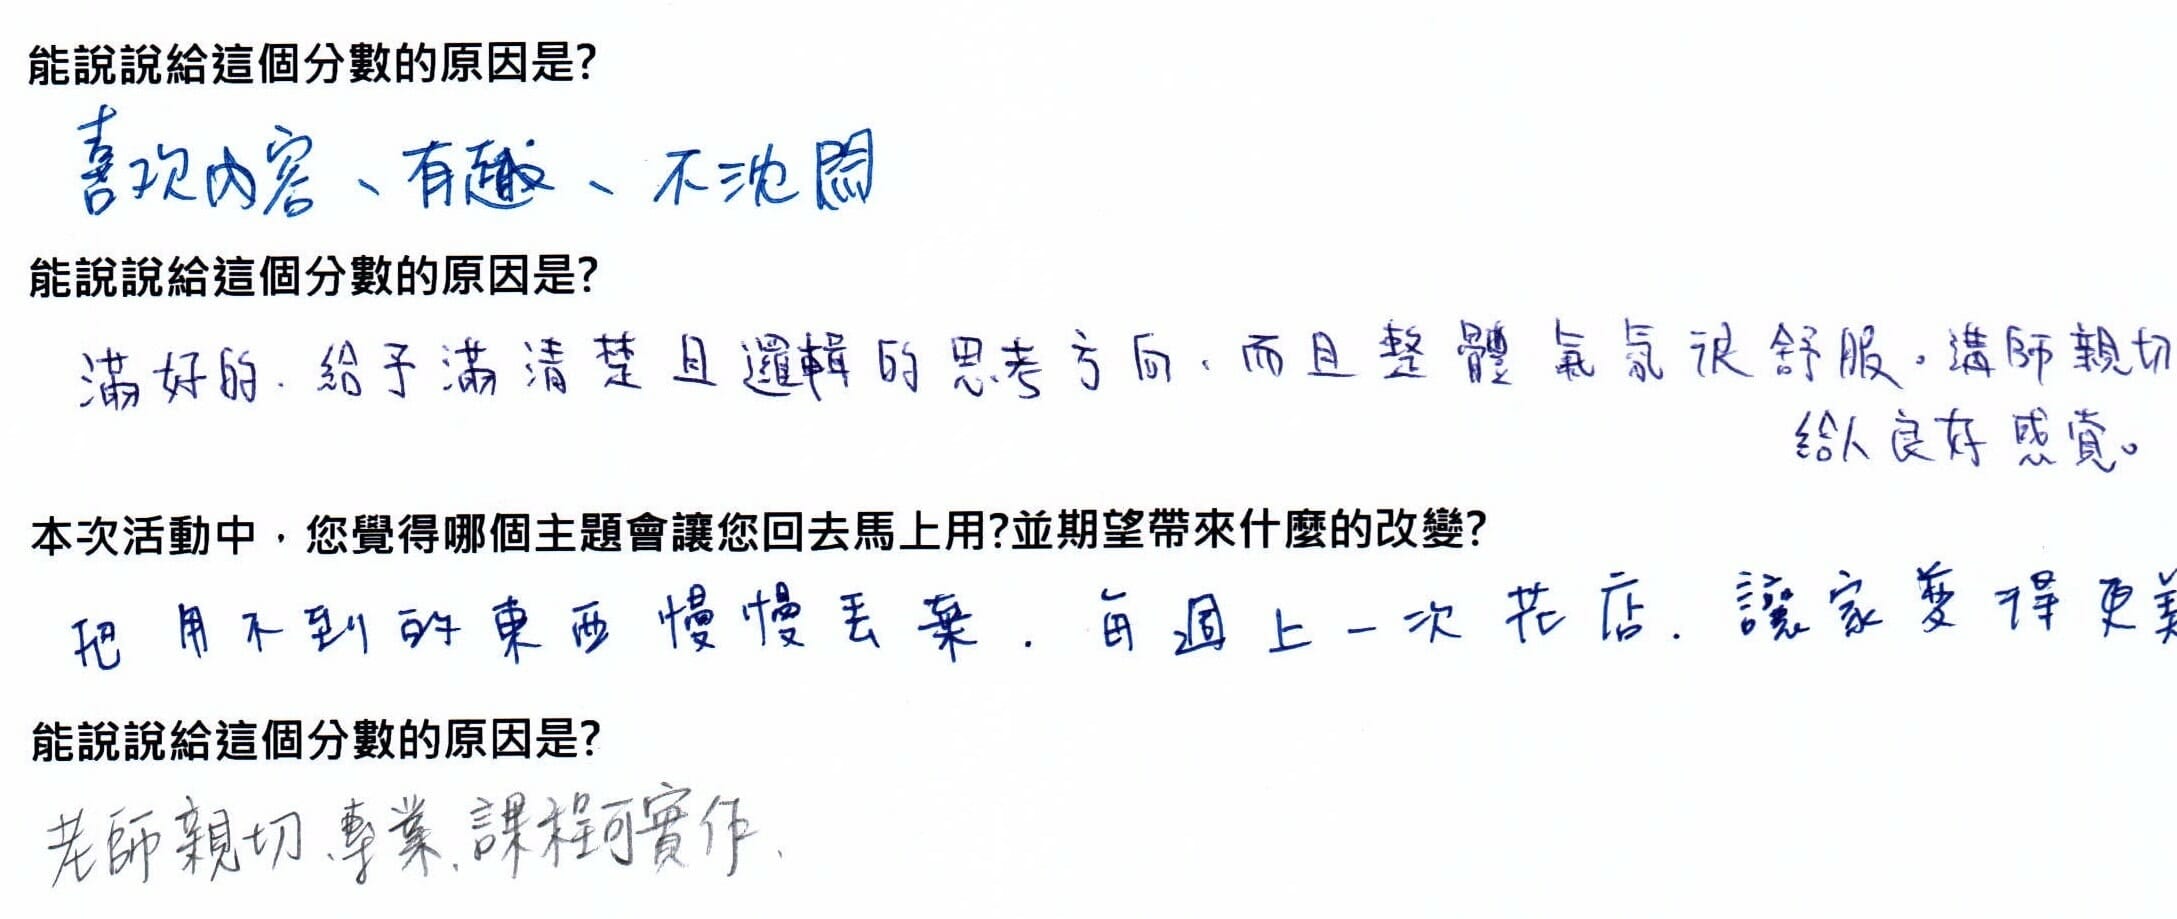 能說說給這個分數的原因是?
喜欢內容、有趣、不沈悶
能說說給這個分數的原因是?
滿好的.給予滿清楚且邏輯的思考方向,而且整體氣氛很舒服。講師親切
給人良好感覺。
本次活動中，您覺得哪個主題會讓您回去馬上用?並期望帶來什麼的改變?
把用不到的東西慢慢丟棄.每週上一次花店.讓家變得更美
能說說給這個分數的原因是?
老師親切、專業、課程可實作.